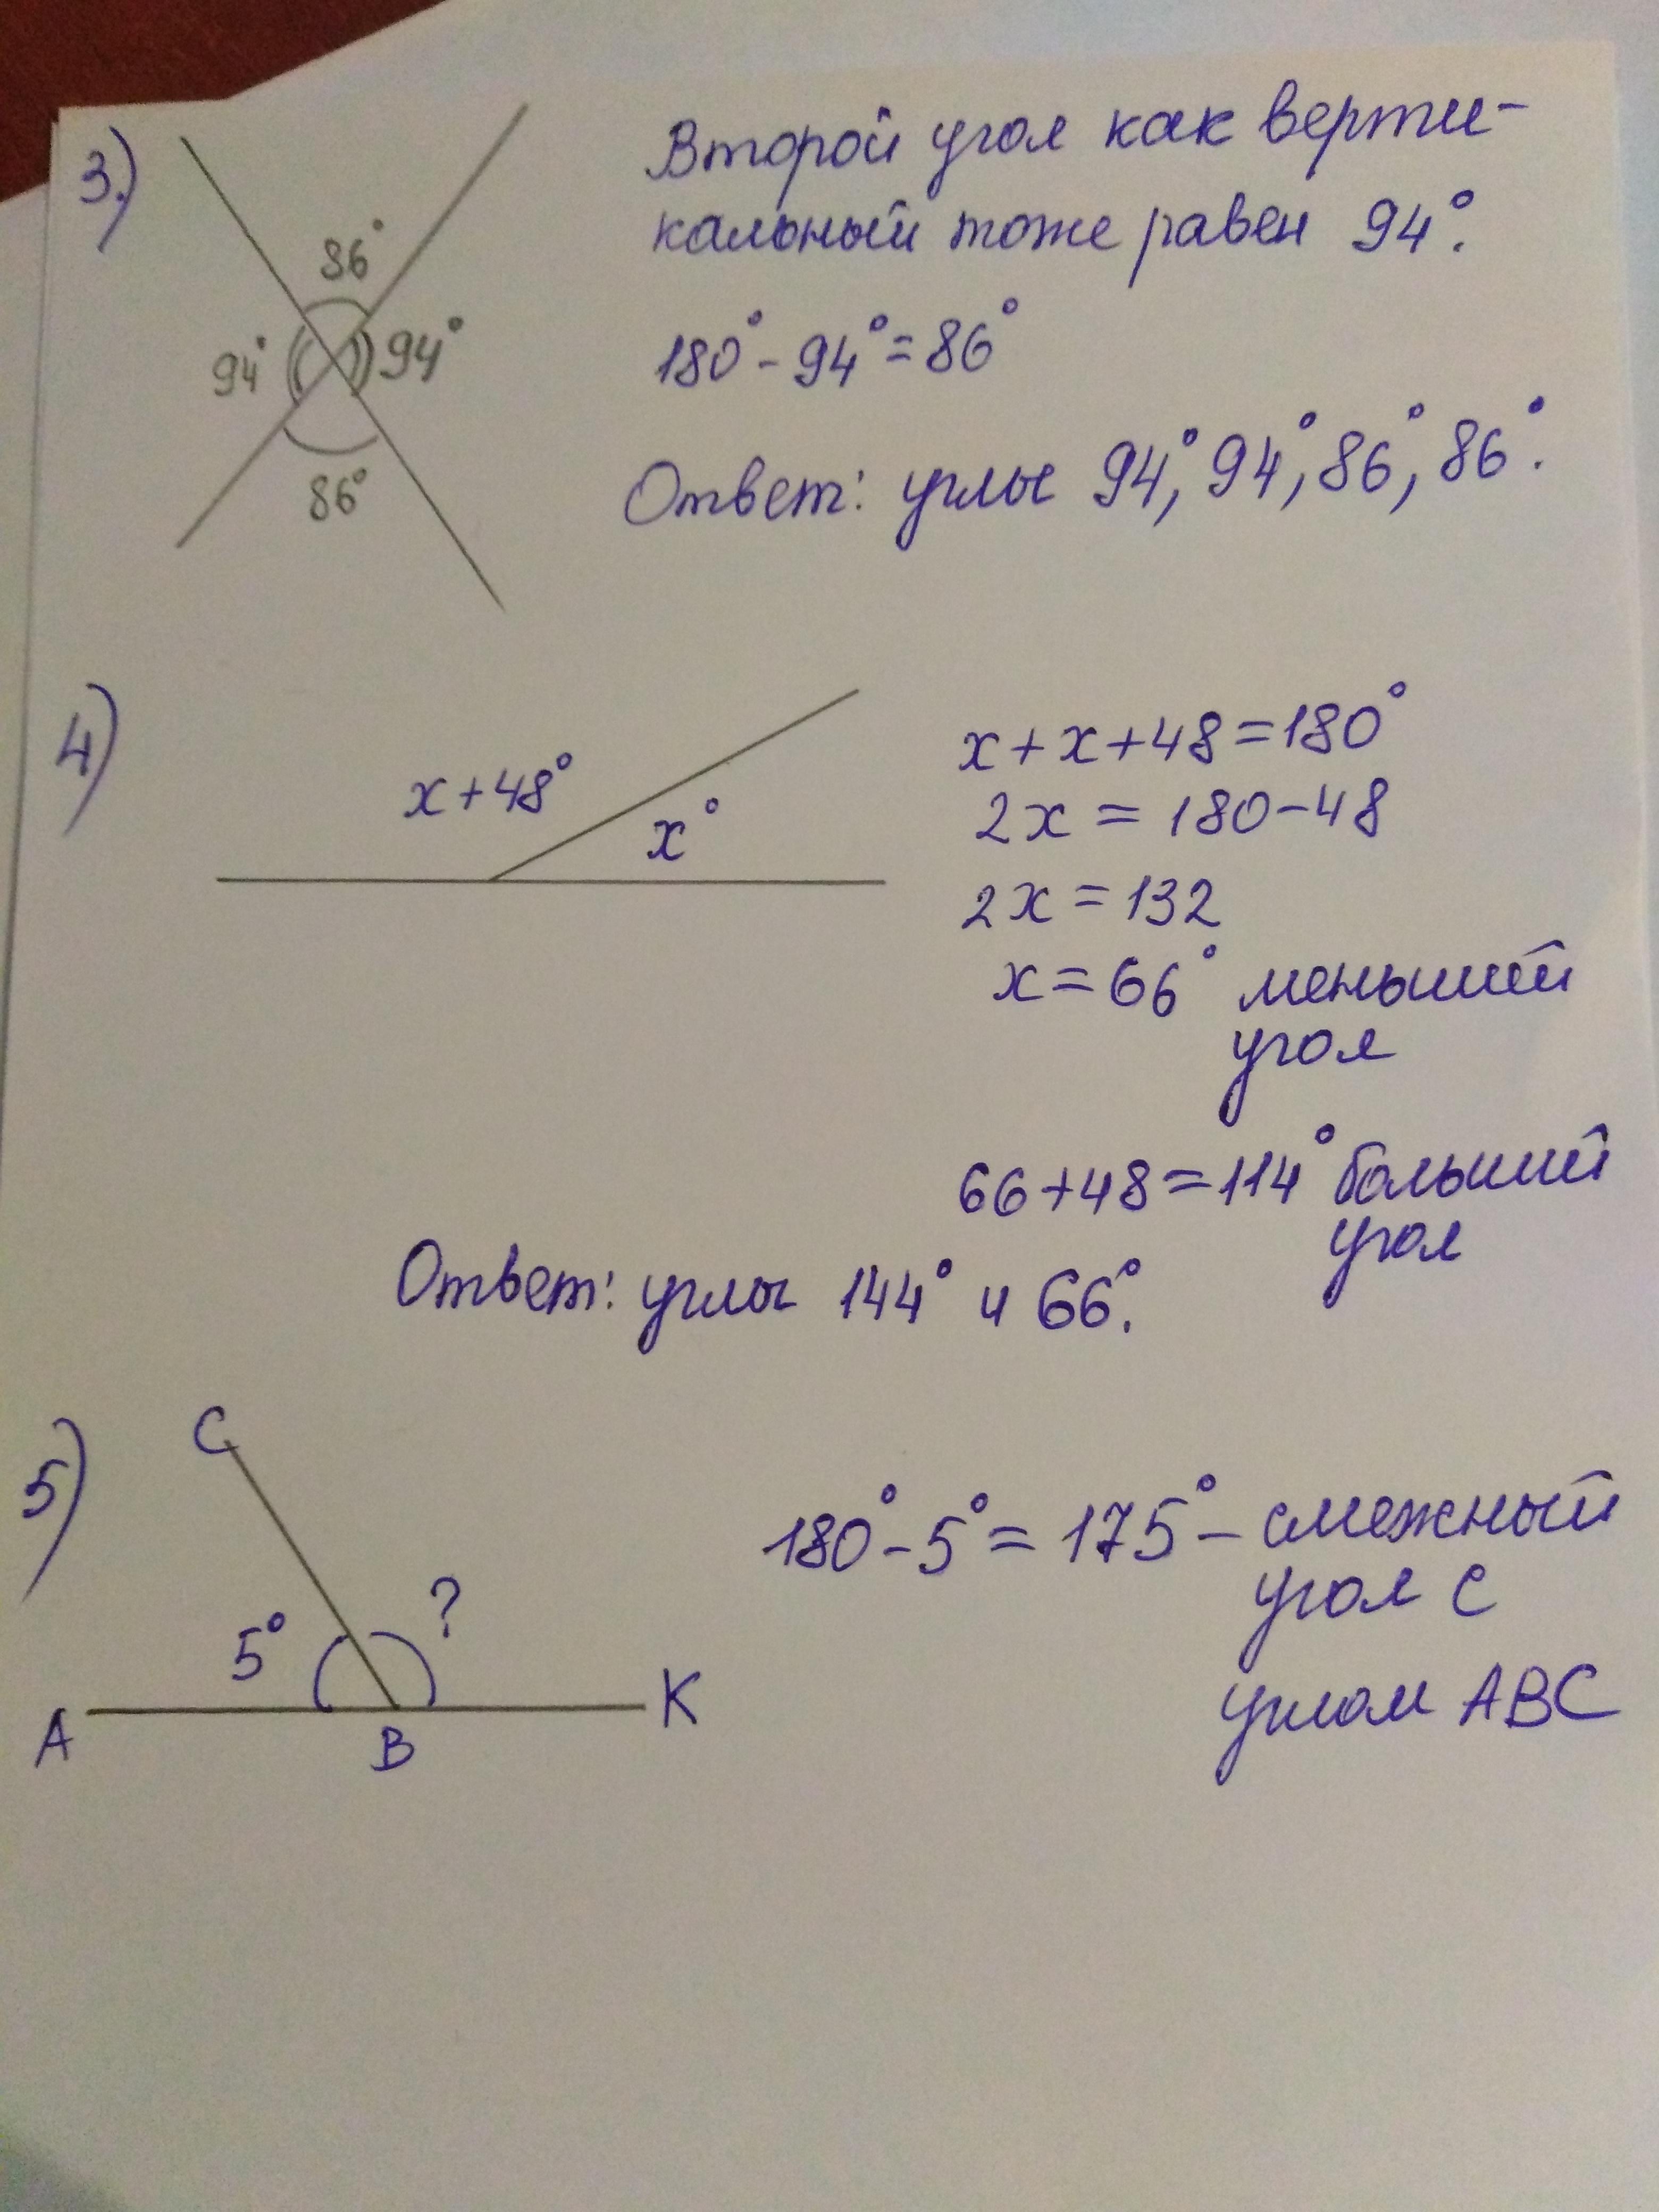 3.)
86°
94°
94°
86°
Второй угол как верти-
кальный тоже равен 94°.
180° - 94° = 86°
Ответ: углы 94°, 94°, 86°, 86°.
4)
x + 48°
x°
x + x + 48 = 180°
2x = 180 - 48
2x = 132
x = 66° меньший
угол
66 + 48 = 114° больший
угол
Ответ: углы 144° и 66°.
5)
C
5°
?
A
B
K
180° - 5° = 175° - смежный
угол с
углом ABC